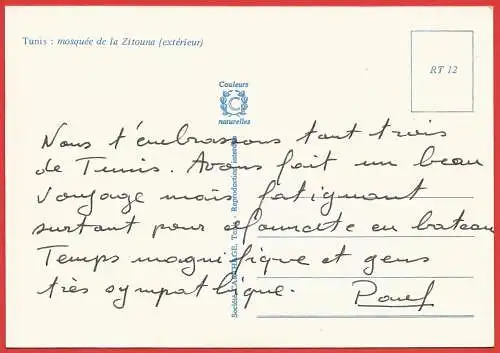 Tunis : mosquée de la Zitouna (extérieur)
RT 12
Couleurs
C
naturelles
Société CARTHAGE, Tunis - Reproduction interdite
Nous t'embrassons tout trois
de Tunis. Avons fait un beau
voyage mais fatiguant
surtout pour en bateau
Temps magnifique et gens
très sympathique.